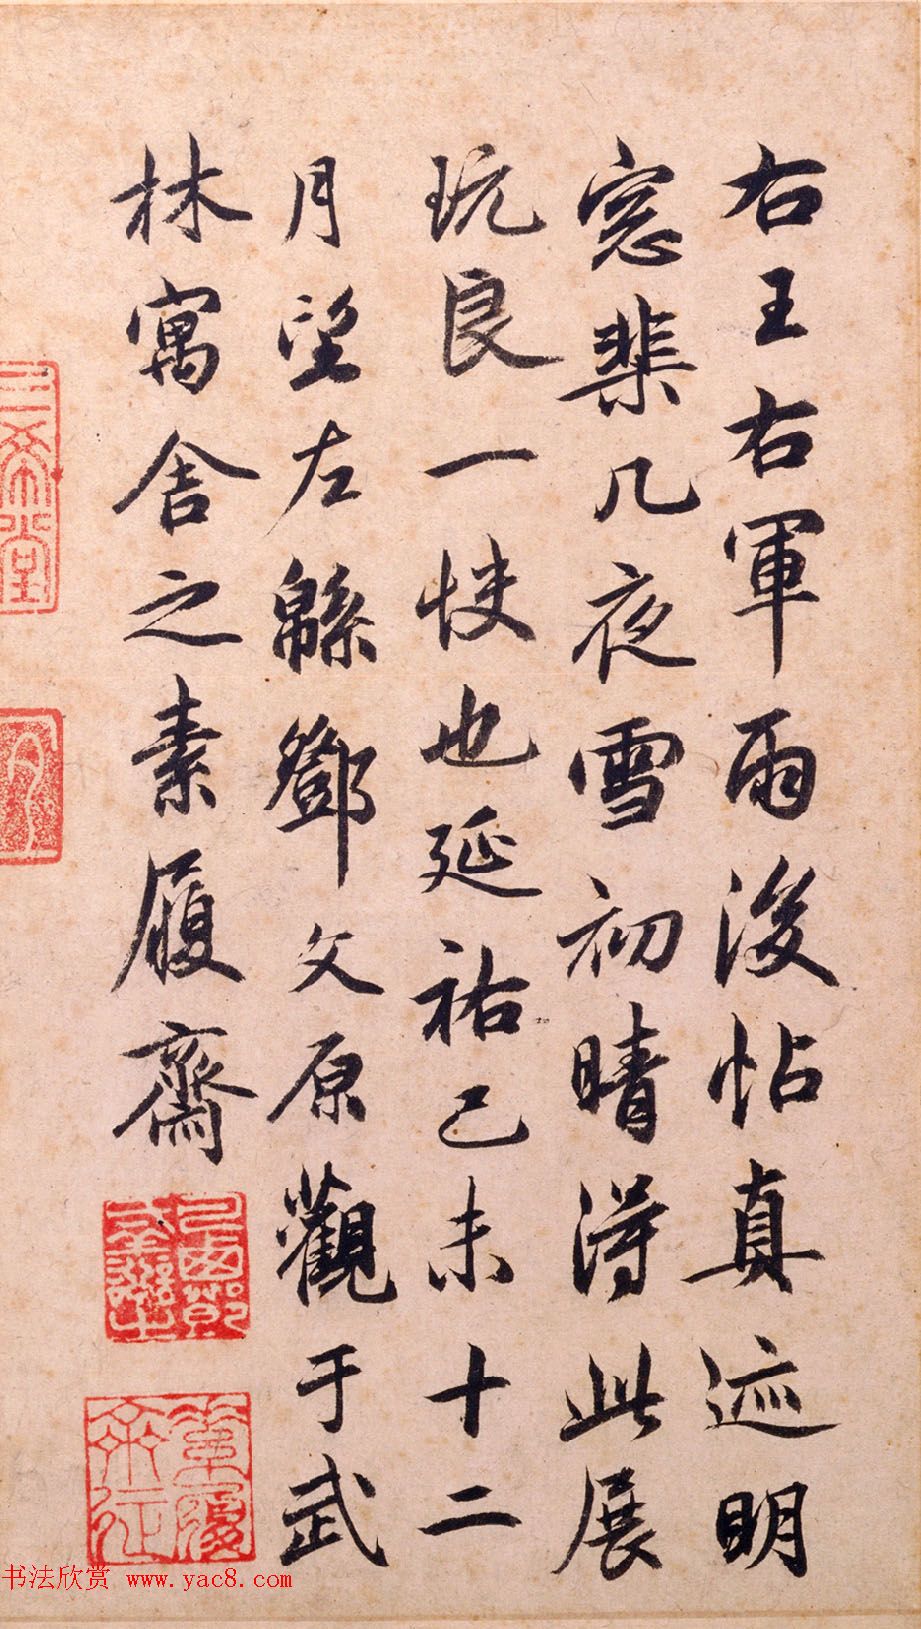 右王右軍雨後帖真迹明
窓棐几夜雪初晴得此展
玩良一快也延祐己未十二
月望左緜鄧文原觀于武
林寓舍之素履齋
三希堂
素履齋
书法欣赏 www.yac8.com